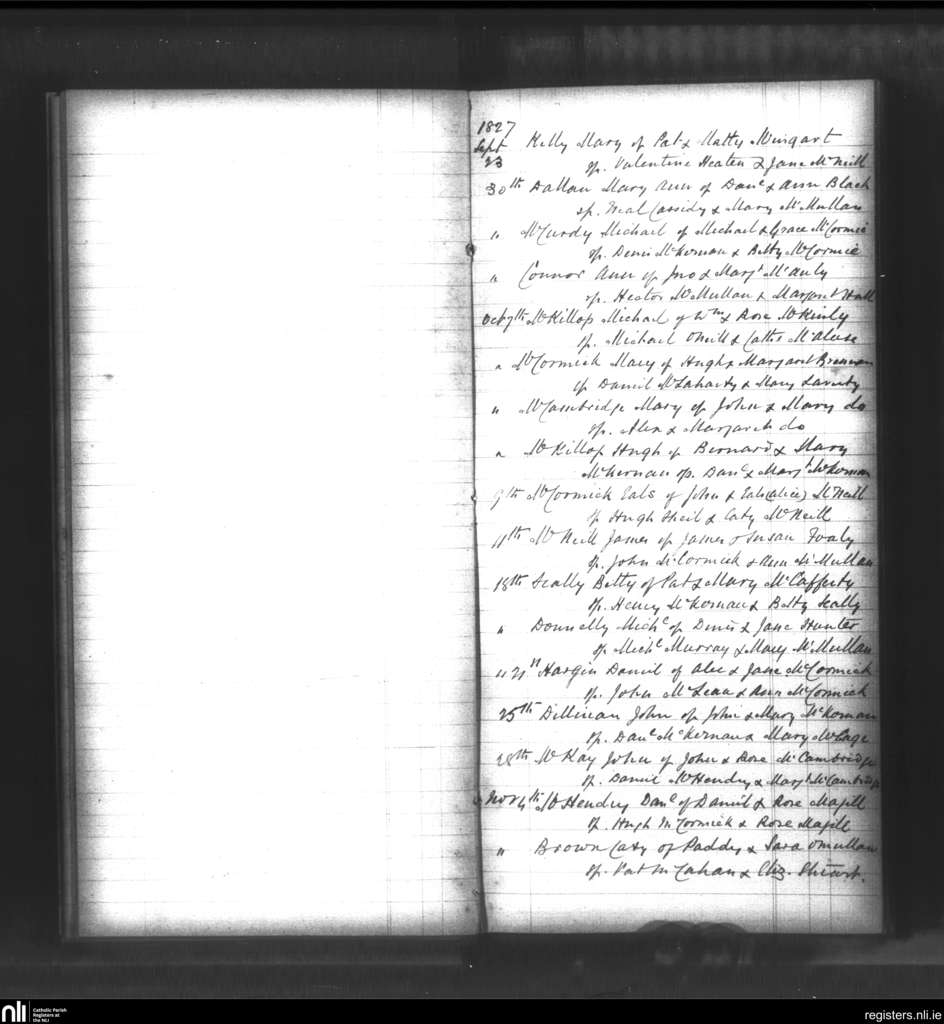 1827
Sept 23 Kelly Mary of Pat & Matty
sp. Valentine Heaten & Jane McNeill
30th Dallan Mary Ann of Danl & Ann Black
sp. Neal Cassidy & Mary McMullan
" McCurdy Michael of Michael & Grace McCormic
sp. Denis McKernan & Betty McCormic
" Connor Ann of Jno & Margt McAuly
sp. Hector McMullan & Margaret
Oct 7th McKillop Michael of Wm & Rose McKinly
sp. Michael ONeill & Cathe
" McCormick Mary of Hugh & Margaret Brennan
sp. Daniel McLaharty & Mary Laverty
" McCambridge Mary of John & Mary do
sp. Alex & Margaret do
" McKillop Hugh of Bernard & Mary
McKernan sp. Danl & Margt McKernan
9th McCormick Eals of John & Eals (alice) McNeill
sp. Hugh Sheil & Caty McNeill
11th McNeill James of James & Susan
sp. John McCormick & Ann McMullan
18th Scally Betty of Pat & Mary McCafferty
sp. Henry McKernan & Betty Scally
" Donnelly Michl of Denis & Jane Hunter
sp. Michl Murray & Mary McMullan
" 21st Hargin Daniel of Alec & Jane McCormick
sp. John & Ann McCormick
25th Dillinan John of John & Mary McKernan
sp. Danl McKernan & Mary McCage
28th McKay John of John & Rose McCambridge
sp. Daniel McHendry & Margt McCambridge
Nov 4th McHendry Danl of Daniel & Rose Magill
sp. Hugh McCormick & Rose Magill
" Brown Caty of Paddy & Sara OMullan
sp. Pat McCahan & Eliz. Stewart.
nli
Catholic Parish
Registers at
the NLI
registers.nli.ie